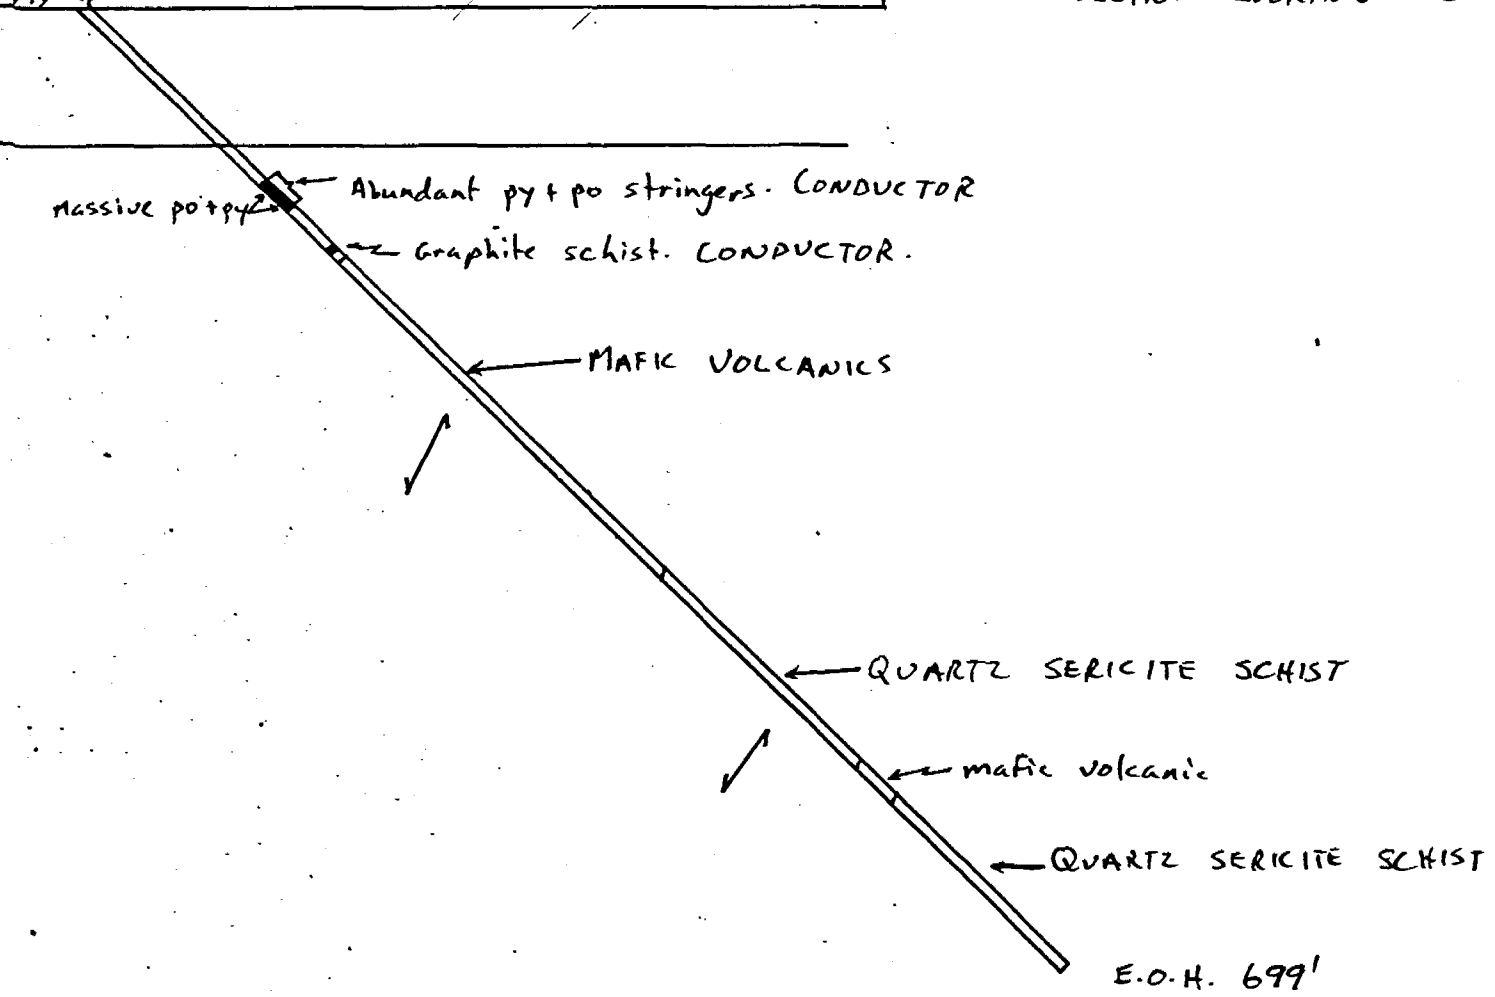 Abundant py + po stringers. CONDUCTOR
Massive po + py
Graphite schist. CONDUCTOR.
MAFIC VOLCANICS
QUARTZ SERICITE SCHIST
mafic volcanic
QUARTZ SERICITE SCHIST
E.O.H. 699'